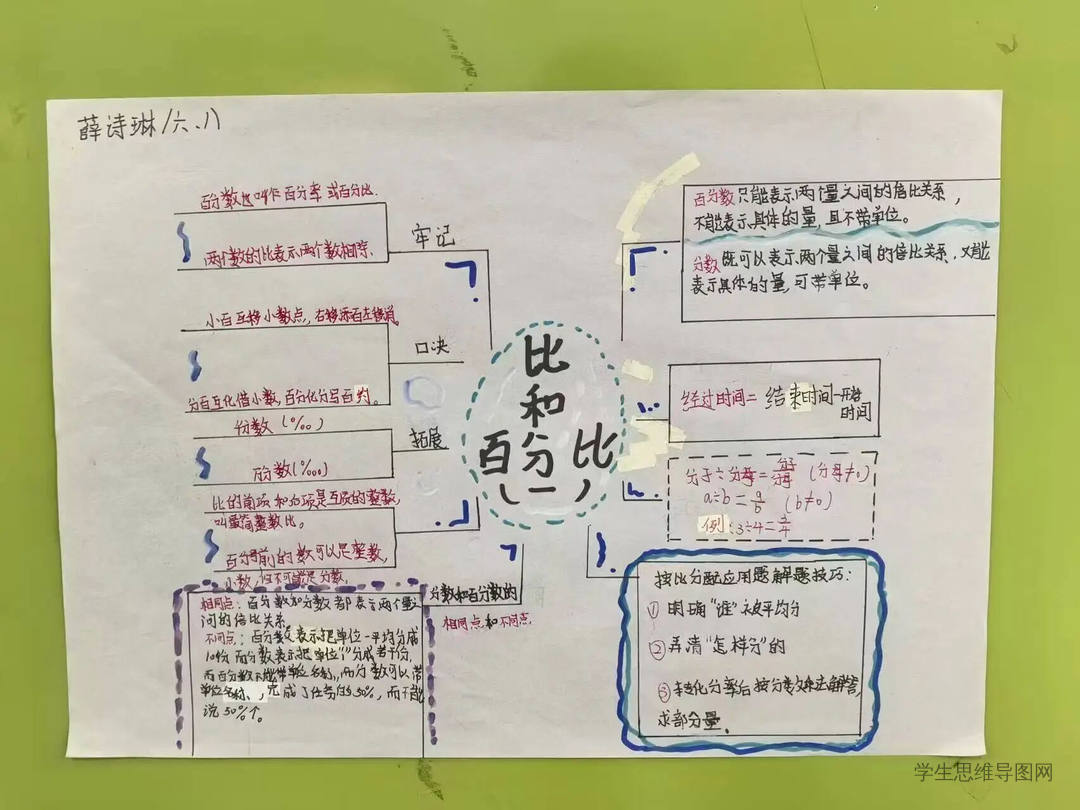 薛诗琳/六、八
百分数也叫作百分率或百分比.
牢记
两个数的比表示两个数相除.
小百互移小数点,右移添百左移消。
口决
分百互化借小数,百分化分写百
份数(‰)
拓展
比的前项和后项是互质的整数,
叫最简整数比。
百分号前的数可以是整数,
小数,但不可能是分数.
分数和百分数的
相同点和不同点.
相同点:百分数和分数都表示两个量之
间的倍比关系
不同点:百分数表示把单位一平均分成
100份而分数表示把单位"1"分成若干份,
单位名称,完成了任务的50%,而不能
说50%个。
比
和
百分比
(一)
百分数只能表示两个量之间的倍比关系,
不能表示具体的量,且不带单位。
分数既可以表示两个量之间的倍比关系,又能
表示具体的量,可带单位。
经过时间=结束时间-开始
时间
分子÷分母=分子/分母(分母≠0)
a÷b=a/b (b≠0)
例:3÷4=3/4
按比分配应用题解题技巧:
①明确"谁"被平均分
②弄清"怎样分"的
③转化分率后按分数乘法解答,
求部分量.
学生思维导图网